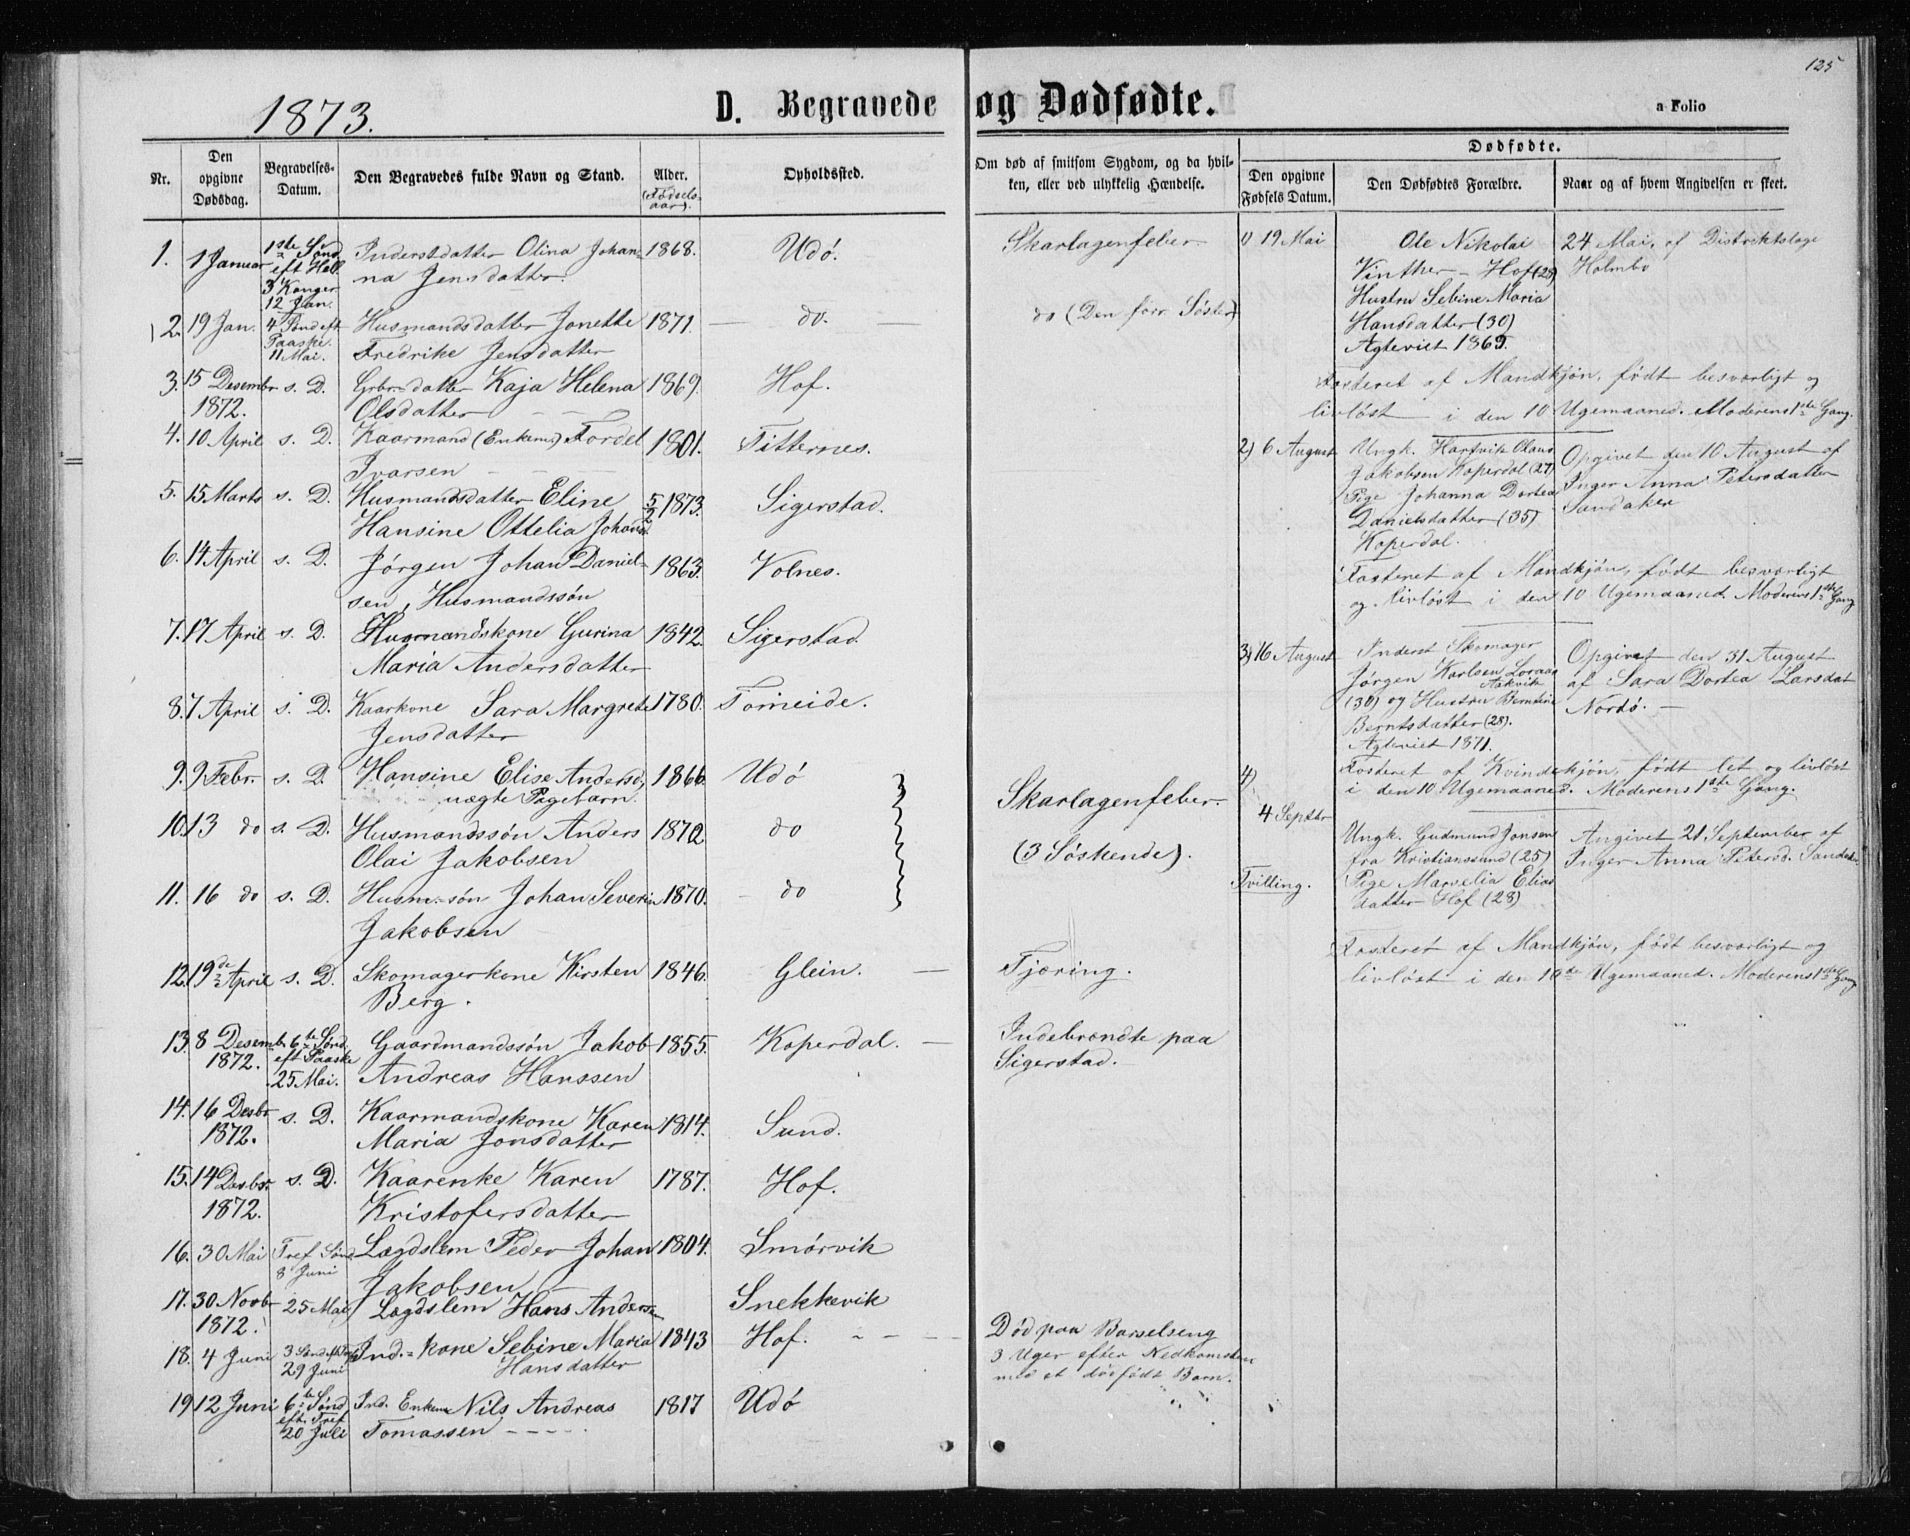 125
1873.
D. Begravede og Dødfødte.
a Folio
Nr.
Den opgivne Dødsdag.
Begravelses-Datum.
Den Begravedes fulde Navn og Stand.
Alder. (Fødselsaar).
Opholdssted.
Om død af smitsom Sygdom, og da hvilken, eller ved ulykkelig Hændelse.
Dødfødte.
Den opgivne Fødsels Datum.
Den Dødfødtes Forældre.
Naar og af hvem Angivelsen er skeet.
1. 1 Januar 1ste Sønd Inderstdatter Olina Johan- 1868. Udö. Skarlagenfeber
eft Hell na Jensdatter.
3 Konger
12 Jan.
2. 19 Jan. 4 Sønd eft Husmandsdatter Jonette 1871. — do. — do (Den forr Søster)
Paaske. Fredrikke Jensdatter
11 Mai.
3. 15 Desembr s. D. Grbr-datter Kaja Helena 1869. Hof.
1872. Olsdatter
4. 10 April s. D. Kaarmand (Enkem) Tordel 1801. Titternes.
Ivarsen
5. 15 Marts s. D. Husmandsdatter Eline 5/2 1873. Sigerstad.
Hansine Ottelia Johans
6. 14 April s. D. Jørgen Johan Daniel- 1863. Volnes.
sen, Husmandssön
7. 17 April s. D. Husmandskone Gurina 1842. Sigerstad.
Maria Andersdatter
8. 7 April s. D. Kaarkone Sara Margrete 1780. Forneide.
Jensdatter
9. 9 Febr. s. D. Hansine Elise Andersd, 1866. Udö
uægte Pigebarn. Skarlagenfeber
10. 13 do s. D. Husmandssön Anders 1872 do
Olai Jakobsen (3 Söskende).
11. 16 do s. D. Husm-sön Johan Severin 1870. — do
Jakobsen
12. 19de April s. D. Skomagerkone Kirsten 1846. Glein. — Tjæring.
Berg.
13. 8 Desemb. 6te Sønd Gaardmandssön Jakob 1855. Koperdal. — Indebrændte paa
1872. eft Paaske Andreas Hanssen Sigerstad.
25 Mai.
14. 16 Desbr s. D. Kaarmandskone Karen 1814. Sund.
1872. Maria Jonsdatter
15. 14 Desbr. s. D. Kaarenke Karen 1787. Hof.
1872. Kristofersdatter
16. 30 Mai Tref Sönd Lægdslem Peder Johan 1804. Smörvik
8 Juni Jakobsen
17. 30 Novbr 25 Mai Lægdslem Hans Andersen Snekkevik
1872.
18. 4 Juni 3 Sønd eft Ind.-kone Sebine Maria 1843 Hof. Död paa Barselseng
29 Juni Hansdatter 3 Uger efter Nedkomsten
med et dödfödt Barn.
19 12 Juni 6te Sønd Ind. Enkem Nils Andreas 1817 Udö
eft. Tref Tomassen
20 Juli
1) 19 Mai Ole Nikolai 24 Mai, af Distriktslæge
Vinther - Hof (28) Holmbo
Hustru Sebine Maria
Hansdatter (30)
Agteviet 1869.
Fosteret af Mandkjön, födt besværligt og
livlöst i den 10 Ugemaaned. Moderens 1ste Gang.
2) 6 August Ungk. Hartvik Olaus Opgivet den 10 August af
Jakobsen Koperdal (27) Inger Anna Petersdatter
Pige Johanna Dortea Sandaker
Danielsdatter (35)
Koperdal.
Fosteret af Mandkjön, födt besværligt
og livlöst i den 10 Ugemaaned. Moderens 1ste Gang
3) 16 August Inderst Skomager Opgivet den 31 August
Jörgen Karlsen af Sara Dortea Larsdat
Aakvik Nordö. —
(30) og Hustru Berntine
Berntsdatter (28).
Agteviet 1871.
Fosteret af Kvindekjön, födt let og livlöst
i den 10 Ugemaaned. Moderens 1ste Gang.
4) 4 Septbr Ungk. Gudmund Jonsen Angivet 21 September af
fra Kristianssund (25) Inger Anna Petersd. Sandaker
Tvilling. Pige Marselia Elias
datter Hof (28)
Fosteret af Mandkjön, födt besværligt og
livlöst i den 10de Ugemaaned. Moderens 1ste Gang